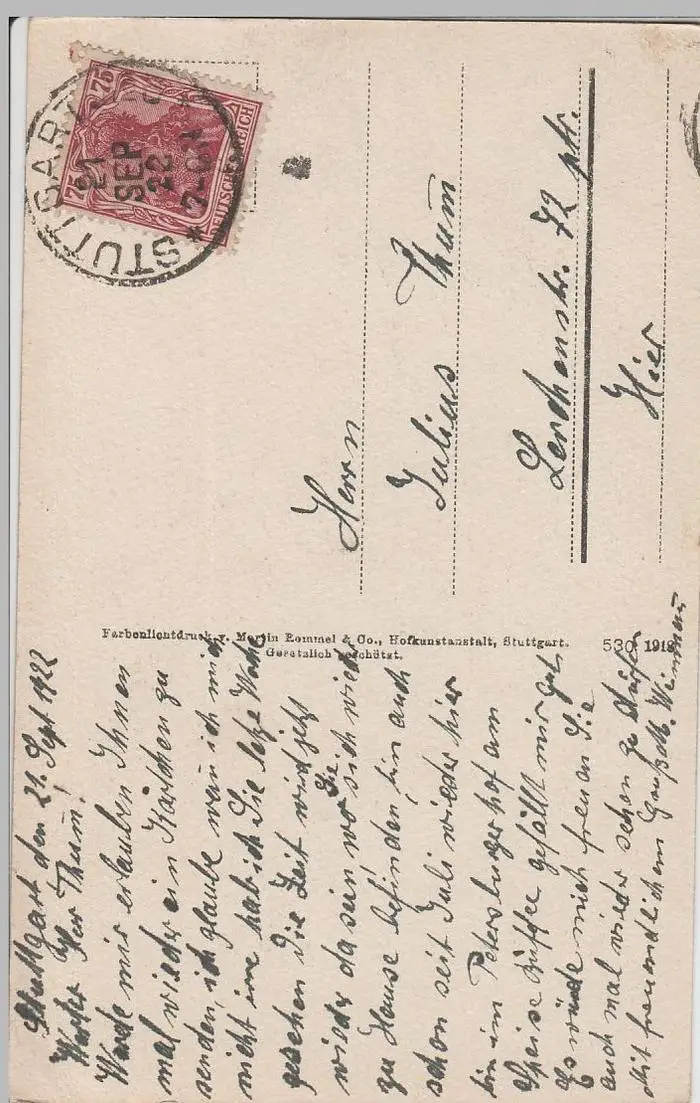 Stuttgart den 21. Sept 1922
Werter Herr Thum!
Werde mir erlauben Ihnen
mal wieder ein Kärtchen zu
senden, ich glaube wenn ich mich
nicht irre hab ich Sie letze Woche
gesehen die Zeit wird jetzt
wieder da sein wo Sie sich wieder
zu Hause befinden, bin auch
schon seit Juli wieder hier
bin im Petersburgerhof am
Speise Büffee gefällt mir gut
Es würde mich freuen Sie
auch mal wieder sehen zu dürfen
Mit freundlichem Gruß
STUTTGART
21
SEP
22
7-8N
75
75
DEUTSCHES REICH
Herrn
Julius Thum
Lerchenstr. 72 ptr.
Hier
Farbenlichtdruck v. Martin Rommel & Co., Hofkunstanstalt, Stuttgart.
Gesetzlich geschützt.
530 1918